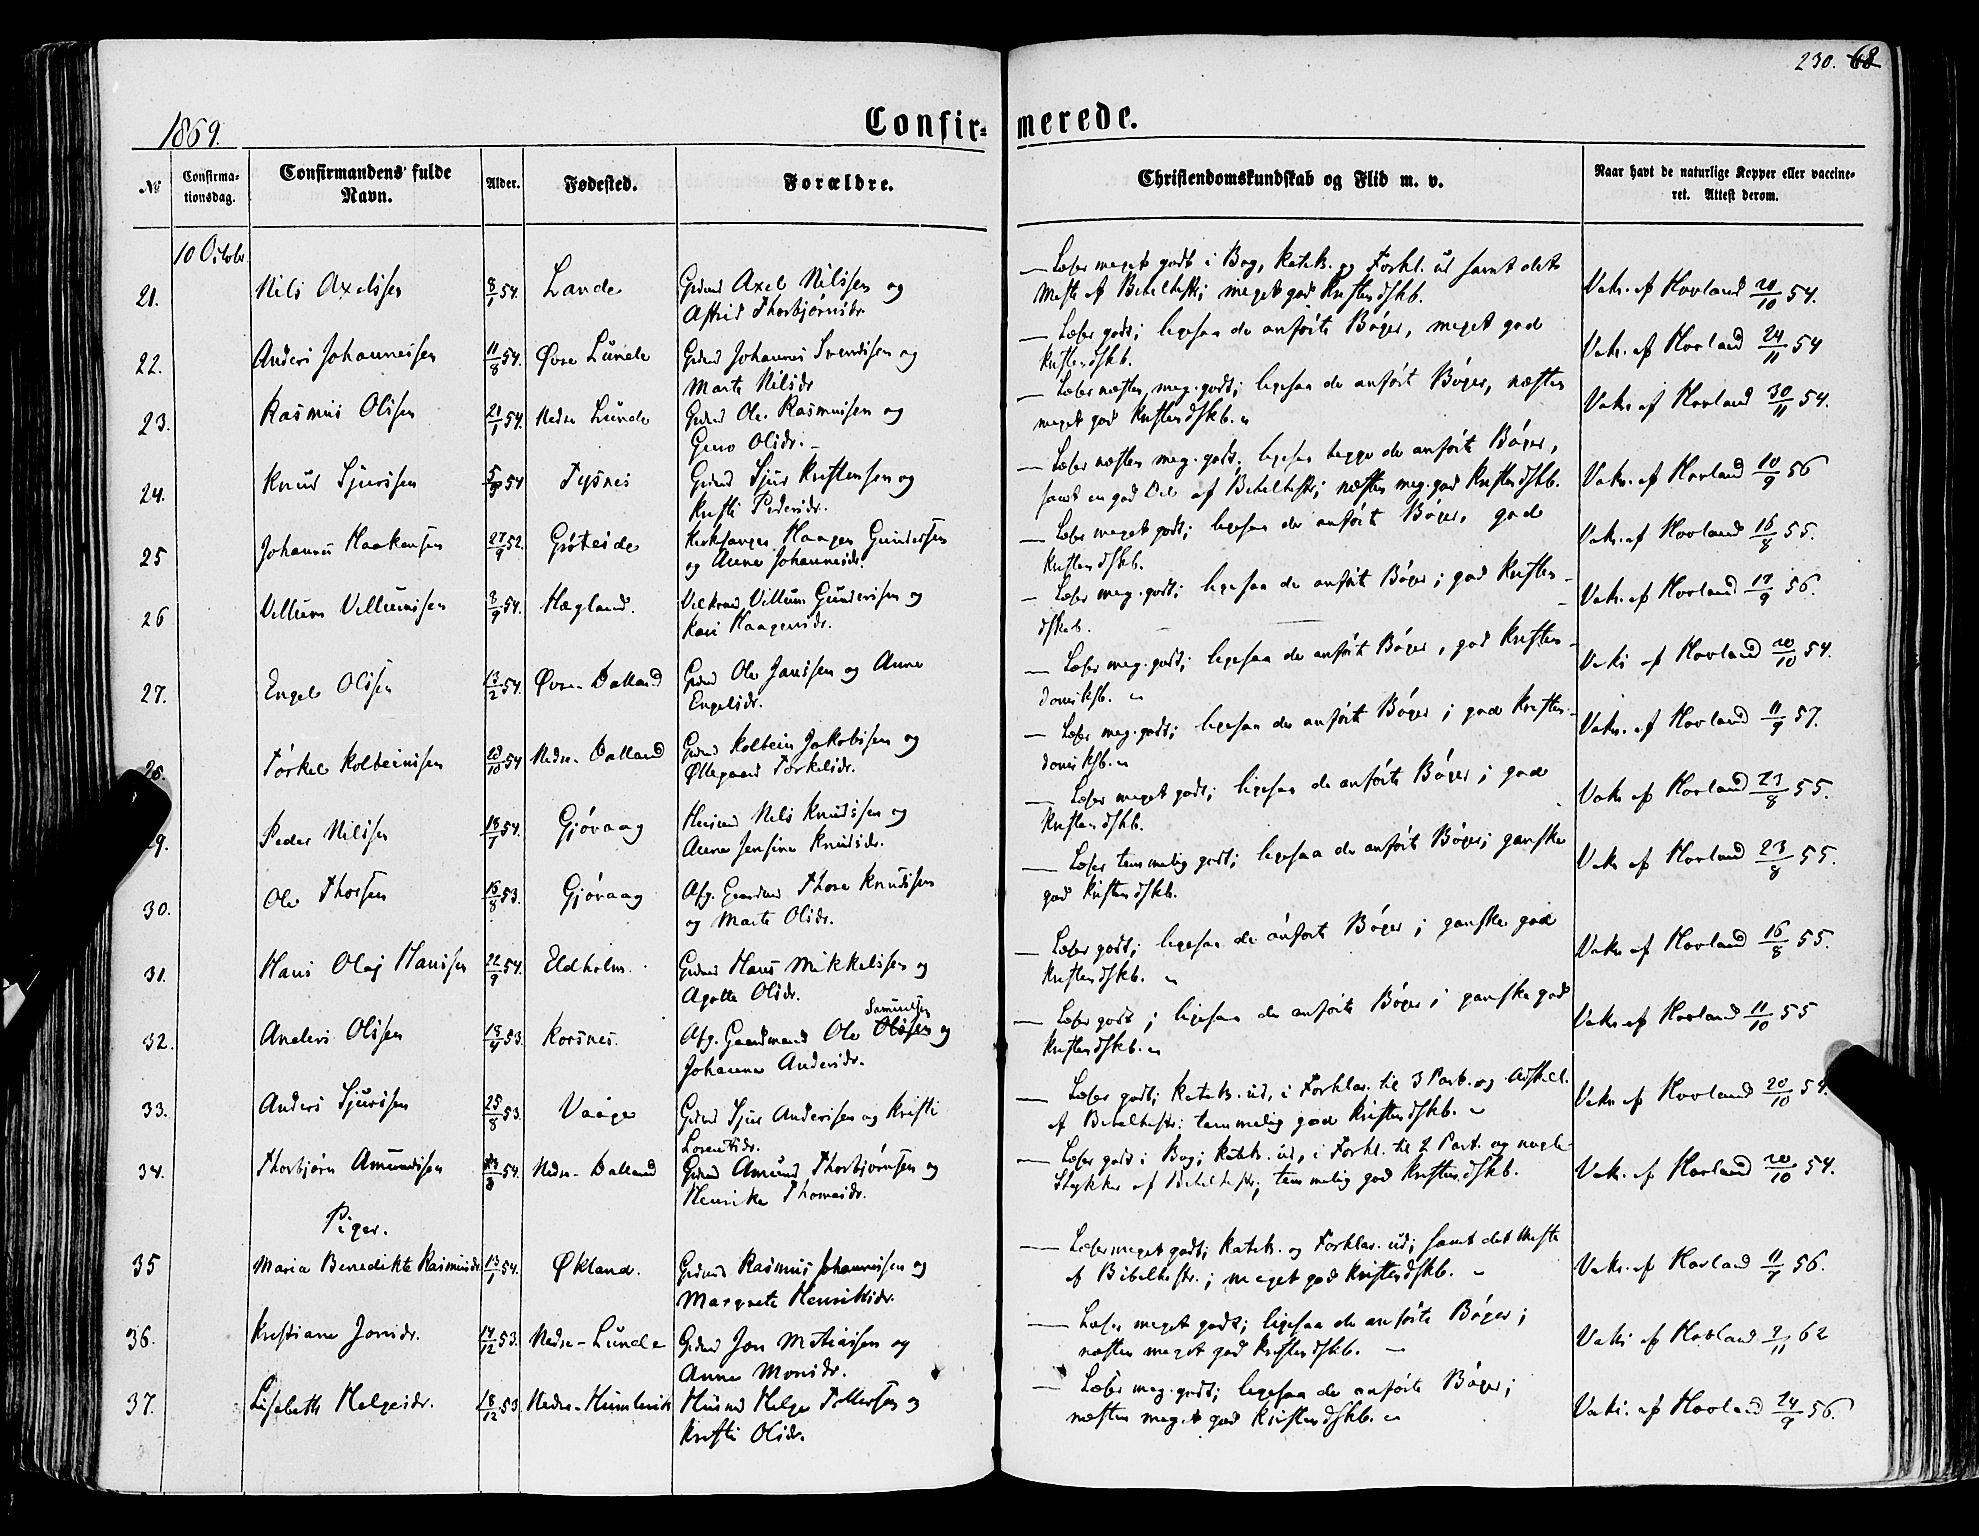 230. 68
1869.
Confir= merede.
No
Confirma-
tionsdag.
Confirmandens fulde
Navn.
Alder.
Fødested.
Forældre.
Christendomskundskab og Flid m. v.
Naar havt de naturlige Kopper eller vaccine-
ret. Attest derom.
10 Octobr.
21. Nils Axelssen 8/1 54. Lande Grdmd Axel Nilssen og
Astrid Thorbjørnsdr.
— Læser meget godt i Bog, Katek. og Forkl. ud samt det
Meste af Bibelhistr; meget god Kristendskb.
Vaks. af Hovland 20/10 54.
22. Anders Johannessen 11/8 54. Øvre Lunde Grdmd Johannes Svendssen og
Marta Nilsdr
— Læser godt; ligesaa de anførte Bøger, meget god
Kristendskb.
Vaks. af Hovland 24/11 54
23. Rasmus Olssen 21/1 54. Nedre Lunde Grdmd Ole Rasmussen og
Guro Olsdr. –
— Læser næsten meg. godt; ligesaa de anført Bøger, næsten
meget god Kristendskb.
Vaks. af Hovland 30/11 54.
24. Knud Sjurssen 54 Tysnes Grdmd Sjur Kristensen og
Kristi Pedersdr.
— Læser næsten meg. godt; ligesaa begge de anførte Bøger,
samt en god Del af Bibelhistr; næsten meg. god Kristendskb.
Vaks. af Hovland 10/9 56
25 Johannes Haakensen 27/9 52. Grøteide Kirksanger Haagen Gunderssen
og Anna Johannesdr.
— Læser meget godt; ligesaa de anførte Bøger, god
Kristendskb.
Vaks. af Hovland 16/8 55.
26 Villum Villumssen 8/9 54. Hægland. Villum Gunderssen og
Kari Haagensdr.
— Læser meg. godt; ligesaa de anførte Bøger; god Kristen-
dskb.
Vaks. af Hovland 17/9 56.
27. Engel Olssen 13/2 54. Øvre Dalland Grdmd Ole Janssen og Anna
Engelsdr.
— Læser meg. godt; ligesaa de anførte Bøger, god Kristen-
domsksb.
Vaks af Hovland 20/10 54.
28. Torkel Kolbeinssen 28/10 54 Nedre Dalland Grdmd Kolbein Jakobssen og
Øllegaard Torkelsdr.
— Læser meg. godt; ligesaa de anførte Bøger; god Kristen-
domsksb.
Vaks. af Hovland 11/9 57.
29. Peder Nilssen 18/1 54. Gjøvaag Husmd Nils Knudssen og
Anna Jensina Knudsdr.
— Læser meget godt; ligesaa de anførte Bøger; god
Kristendskb.
Vaks af Hovland 23/8 55.
30. Ole Thorsen 16/8 53. Gjøvaag Afg. Gaardmd Thore Knudssen
og Marta Olsdr.
— Læser temmelig godt; ligesaa de anført Bøger; ganske
god Kristendskb.
Vaks af Hovland 23/8 55.
31. Hans Olaj Hanssen 22/9 54. Eldholm. Grdmd Hans Mikkelssen og
Agatta Olsdr.
— Læser godt; ligesaa de anførte Bøger; ganske god
Kristendskb.
Vaks. af Hovland 16/8 55.
32. Anders Olssen 18/4 53. Korsnes. Afg. Gaardmand Ole Olssen og
Samuelssen
Johanna Andersdr.
— Læser godt; ligesaa de anførte Bøger; ganske god
Kristendskb.
Vaks af Hovland 11/10 55
33. Anders Sjurssen 25/8 53. Vaage Grdmd Sjur Anderssen og Kristi
Lorentsdr.
— Læser godt; Katek. ud, i Forklar. til 3 Part. og Adskil.
af Bibelhistr: temmelig god Kristendskb.
Vaks af Hovland 20/10 54.
34. Thorbjørn Amundssen 54. Nedre Dalland Grdmd Amund Thorbjørnsen og
Henrika Thomasdr.
— Læser godt i Bog; Katek. ud, i Forkl. til 2 Part. og nogle
Stykker af Bibelhistr; temmelig god Kristendskb.
Vaks. af Hovland 20/10 54.
Piger.
35 Maria Benedikte Rasmusdr. 13/1 54. Økland. Grdmd Rasmus Johannessen og
Margrete Henriksdr.
— Læser meget godt; Katek. og Forklar. ud; samt det Meste
af Bibelhistr.; meget god Kristendskb.
Vaks. af Hovland 11/7 56.
36. Kristiane Jonsdr. 14/12 53. Nedre-Lunde Grdmd Jon Mathiassen og
Anna Monsdr.
— Læser meget godt; ligesaa de anførte Bøger;
næsten meget god Kristendskb. —
Vaks af Hovland 9/11 62
37. Lisebeth Helgesdr. 18/12 53 Nedre-Humlevik Husmd Helge Tollefsen og
Kristi Olsdr.
— Læser meg. godt; ligesaa de anførte Bøger;
næsten meget god Kristendskb.
Vaks. af Hovland 24/9 56.